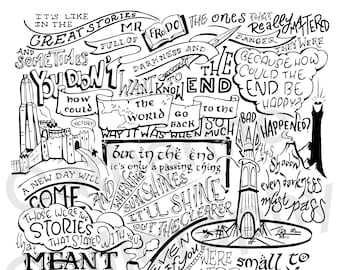 IT'S LIKE IN THE
GREAT STORIES
MR
FRODO
THE ones THAT
Really MATTERED
FULL OF
DARKNESS AND
DANGER
THEY WERE
AND SOMETIMES
YOU DON'T
WANT TO
KNOW
THE
END
BECAUSE HOW
COULD THE
END BE
HAPPY?
how
could
THE
WORLD
GO
BACK
to the
WAY IT WAS WHEN SO
MUCH
BAD
HAPPENED?
but in the end
it's only a passing thing
A Shadow
even darkness
must pass
A NEW DAY WILL
COME
SUNSHINES
IT'LL SHINE
OUT THE CLEARER
THOSE WERE THE
STORIES
THAT STAYED
WITH
MEANT
WERE
small to